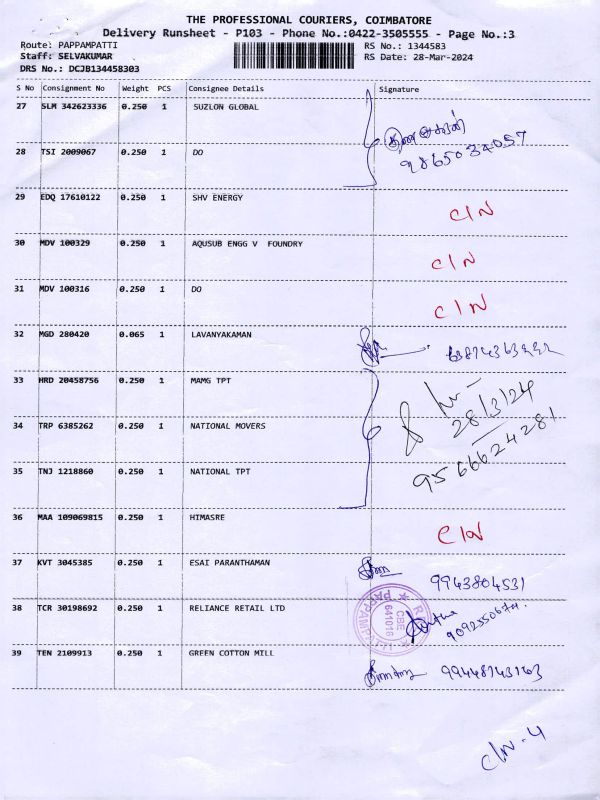 THE PROFESSIONAL COURIERS, COIMBATORE
Delivery Runsheet - P103 - Phone No.:0422-3505555 - Page No.:3
Route: PAPPAMPATTI RS No.: 1344583
Staff: SELVAKUMAR RS Date: 28-Mar-2024
DRS No.: DCJB134458303
S No Consignment No Weight PCS Consignee Details Signature
27 SLM 342623336 0.250 1 SUZLON GLOBAL
28 TSI 2009067 0.250 1 DO
9865034057
29 EDQ 17610122 0.250 1 SHV ENERGY C/N
30 MDV 100329 0.250 1 AQUSUB ENGG V FOUNDRY C/N
31 MDV 100316 0.250 1 DO C/N
32 MGD 280420 0.065 1 LAVANYAKAMAN
33 HRD 20458756 0.250 1 MAMG TPT
28/3/24
34 TRP 6385262 0.250 1 NATIONAL MOVERS
9566624281
35 TNJ 1218860 0.250 1 NATIONAL TPT
36 MAA 109069815 0.250 1 HIMASRE C/N
37 KVT 3045385 0.250 1 ESAI PARANTHAMAN 9943804531
38 TCR 30198692 0.250 1 RELIANCE RETAIL LTD
PAPPAMPATTI
CBE
641016
39 TEN 2109913 0.250 1 GREEN COTTON MILL
C/N-4